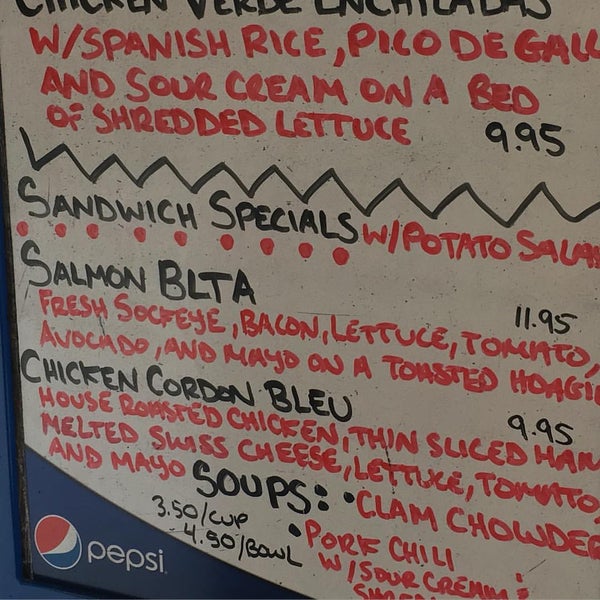 CHICKEN VERDE ENCHILADAS
W/SPANISH RICE, PICO DE GALL
AND SOUR CREAM ON A BED
OF SHREDDED LETTUCE 9.95
SANDWICH SPECIALS W/POTATO SALA
SALMON BLTA 11.95
FRESH SOCKEYE, BACON, LETTUCE, TOMATO,
AVOCADO, AND MAYO ON A TOASTED HOAGI
CHICKEN CORDON BLEU 9.95
HOUSE ROASTED CHICKEN, THIN SLICED HAM
MELTED SWISS CHEESE, LETTUCE, TOMATO,
AND MAYO
SOUPS: • CLAM CHOWDER
3.50/CUP
4.50/BOWL
• PORK CHILI
W/SOUR CREAM
pepsi